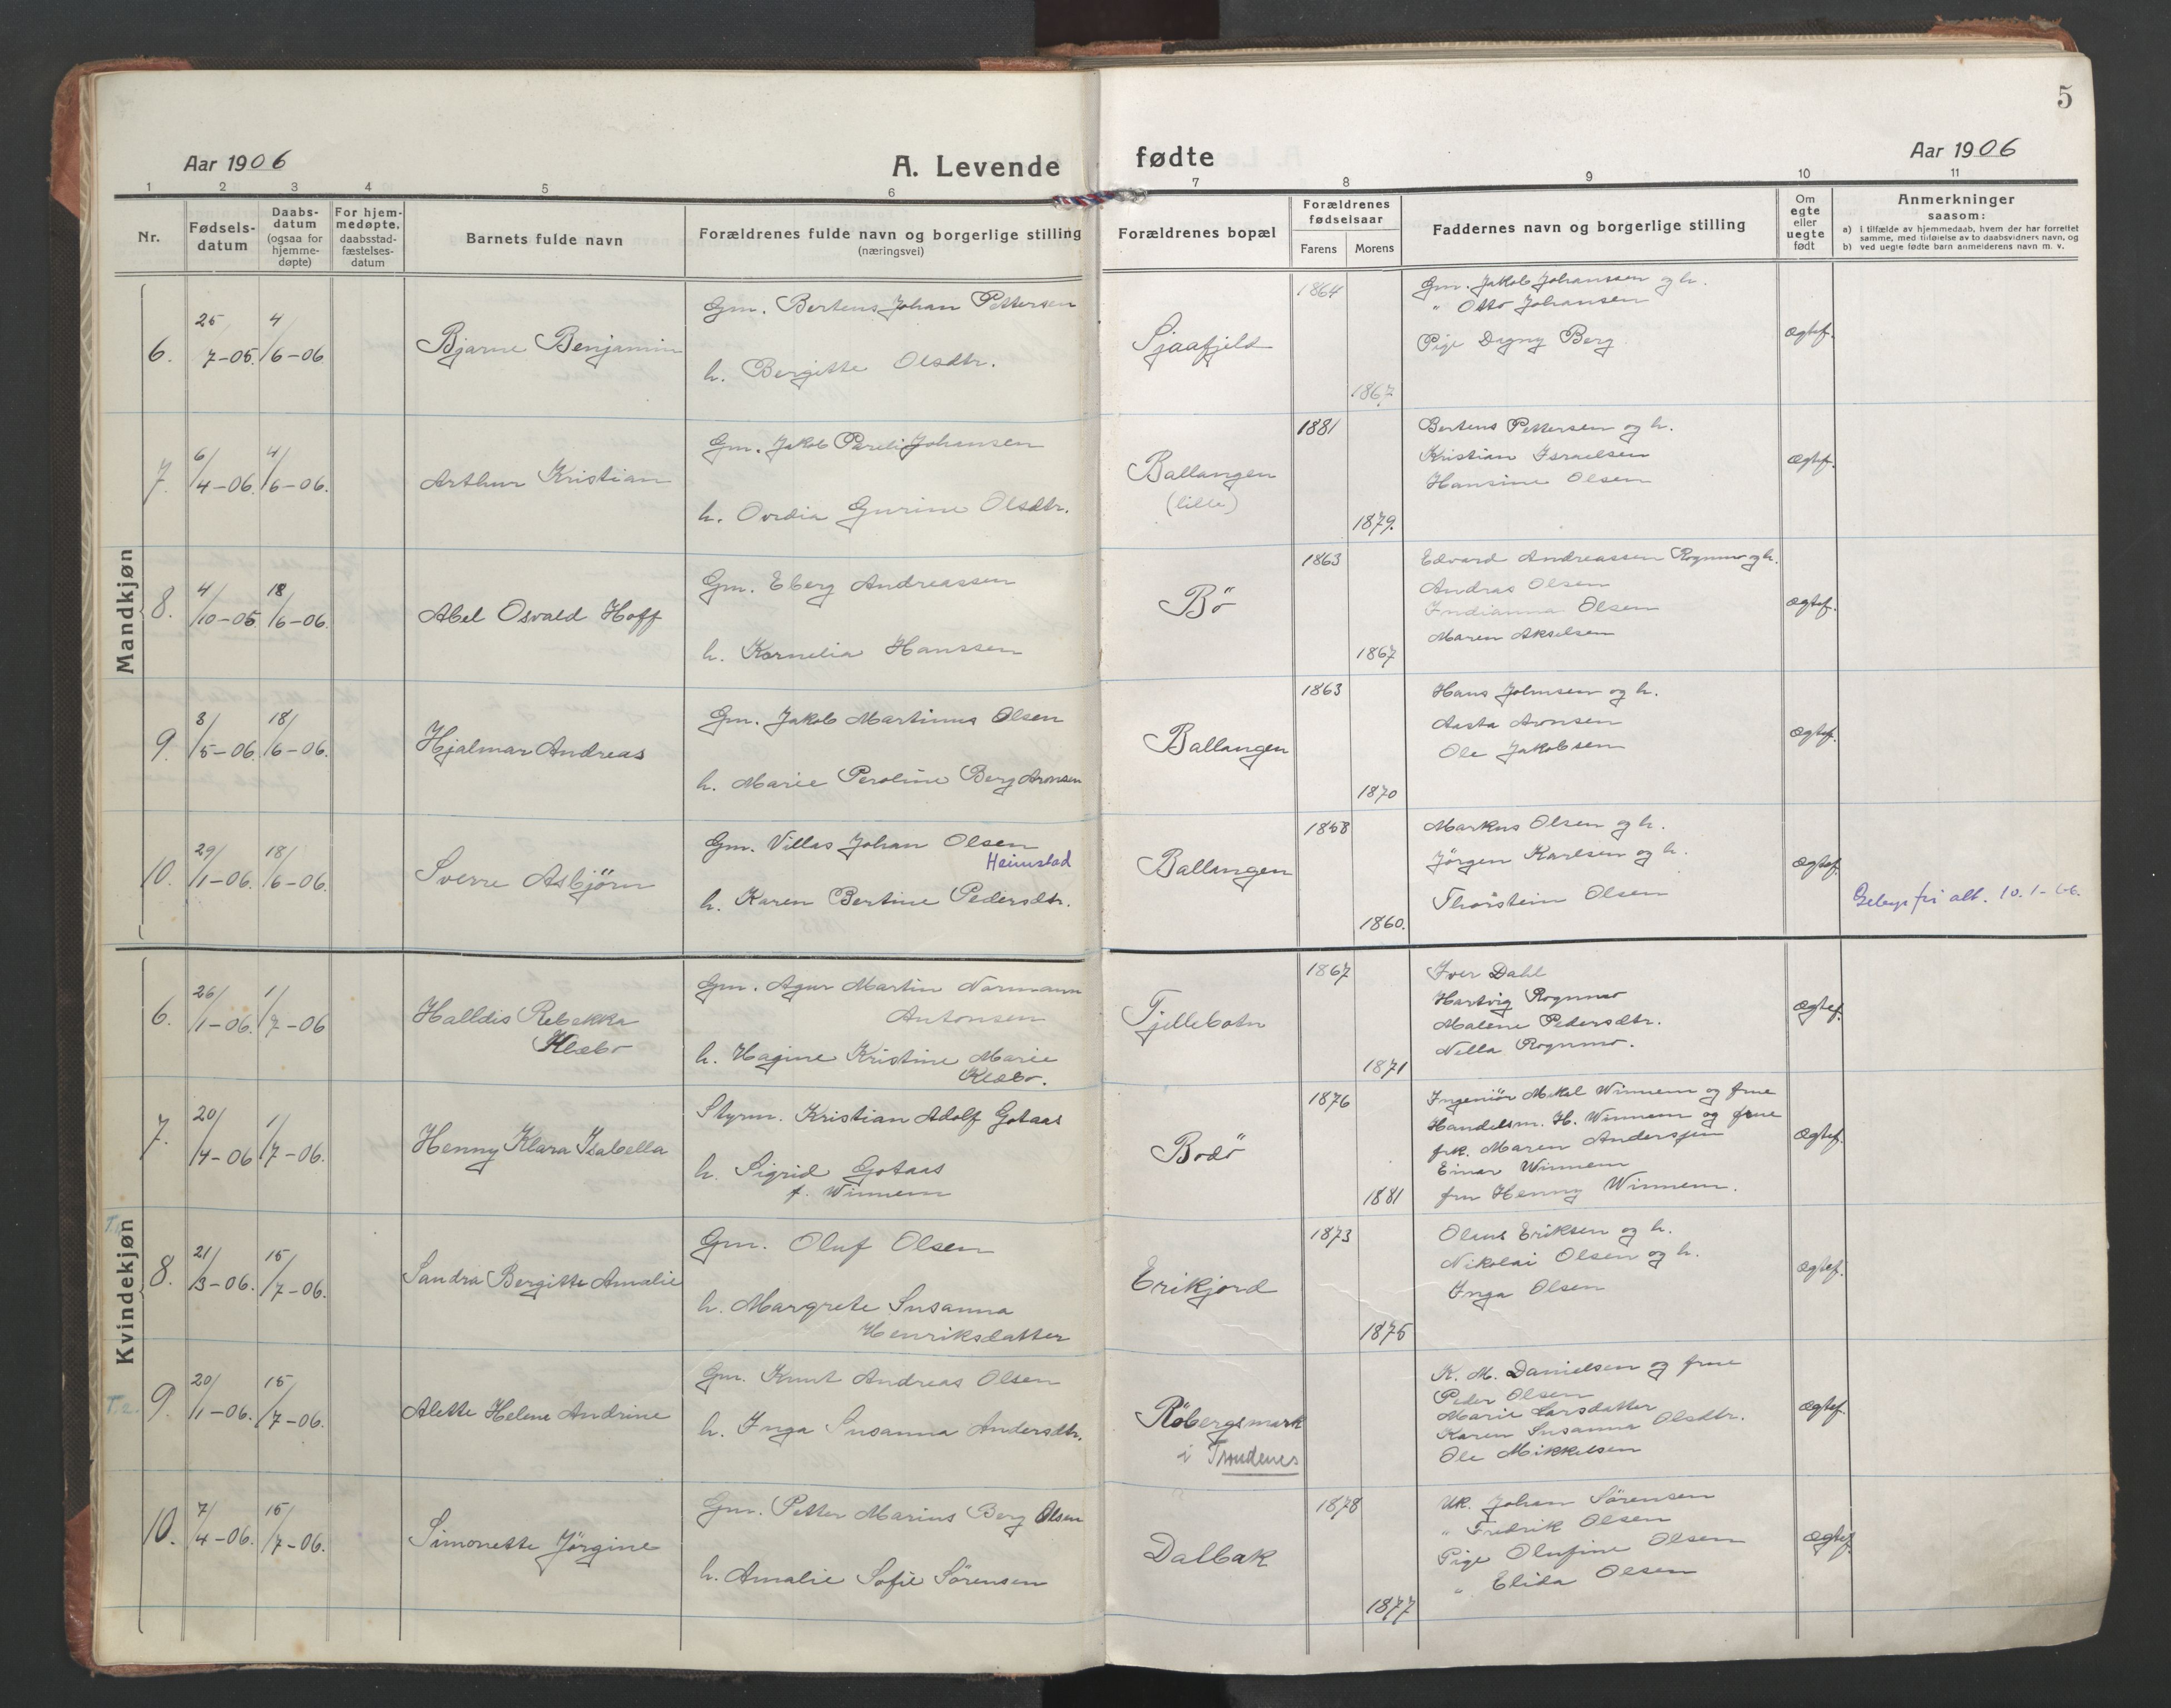 5
Aar 1906
A. Levende fødte
Aar 1906
1 2 3 4 5 6 7 8 9 10 11
Nr.
Fødsels-
datum
Daabs-
datum
(ogsaa for
hjemme-
døpte)
For hjem-
medøpte.
daabsstad-
fæstelses-
datum
Barnets fulde navn
Forældrenes fulde navn og borgerlige stilling
(næringsvei)
Forældrenes bopæl
Forældrenes
fødselsaar
Farens Morens
Faddernes navn og borgerlige stilling
Om
egte
eller
uegte
født
Anmerkninger
saasom:
a) i tilfælde av hjemmedaab, hvem der har forrettet
samme, med tilføielse av to daabsvidners navn, og
b) ved uegte fødte barn anmelderens navn m. v.
Mandkjøn
6.
25/7-05.
4/6-06
Bjarne Benjamin
Gm. Bertens Johan Pettersen
h. Bergitte Olsdtr.
Sjaafjeld
1864
1867
Gm. Jakob Johanssen og h.
" Otto Johansen
Pige Dagny Berg
Ægtef.
7.
6/4-06.
4/6-06.
Arthur Kristian
Gm. Jakob Pareli Johansen
h. Ovedia Gurine Olsdtr.
Ballangen
(lille)
1881
1879.
Bertens Pettersen og h.
Kristian Israelsen
Hansine Olsen
Ægtef.
8.
4/10-05
18/6-06.
Abel Osvald Hoff
Gm. Eberg Andreassen
h. Kornelia Hanssen
Bö
1863
1867
Edvard Andreassen Rognmo og h.
Andras Olsen
Indianna Olsen
Maren Akselsen
Ægtef.
9.
8/5-06.
18/6-06.
Hjalmar Andreas
Gm. Jakob Martinus Olsen
h. Marie Peroline Berg Aronsen
Ballangen
1863
1870
Hans Johnsen og h.
Aasta Aronsen
Ole Jakobsen
Ægtef.
10.
29/1-06.
18/6-06.
Sverre Asbjörn
Gm. Villas Johan Olsen
Heimstad
h. Karen Bertine Pedersdtr.
Ballangen
1858
1860.
Markus Olsen og h.
Jörgen Karlsen og h.
Thorstein Olsen
Ægtef.
Gebyrfri att. 10.1-66.
Kvindekjøn
6.
26/1-06.
1/7-06
Halldis Rebekka
Klæbo
Gm. Agur Martin Normann
Antonsen
h. Hagine Kristine Marie
Klæbo.
Tjellebotn
1867
1871
Iver Dahl
Hartvig Rognmo
Malene Pedersdtr.
Nella Rognmo.
Ægtef.
7.
20/4-06
1/7-06.
Henny Klara Isabella
Styrm. Kristian Adolf Gotaas
h. Sigrid Gotaas
f. Winnem
Bodö
1876
1881
Ingeniör Mikal Winnem og frue
Handelsm. H. Winnem og frue
frk. Maren Anderssen
Einar Winnem
fru Henny Winnem.
Ægtef.
8.
21/3-06.
15/7-06.
Sandra Bergitte Amalie
Gm. Oluf Olsen
h. Margrete Susanna
Henriksdatter
Erikjord
1873
1875
Olaus Eriksen og h.
Nikolai Olsen og h.
Inga Olsen
Ægtef.
T.2.
9.
20/1-06.
15/7-06.
Alette Helene Andrine
Gm. Knut Andreas Olsen
h. Inga Susanna Andersdtr.
Röbergsmark
i Trondenes
K. M. Danielsen og frue
Peder Olsen
Marie Larsdatter
Karen Susanna Olsdtr.
Ole Mikkelsen
Ægtef.
10.
7/4-06.
15/7-06.
Simonette Jörgine
Gm. Petter Marius Berg Olsen
h. Amalie Sofie Sörensen
Dalbak
1878
1877
Uk. Johan Sörensen
" Fredrik Olsen
Pige Olufine Olsen
" Elida Olsen
Ægtef.